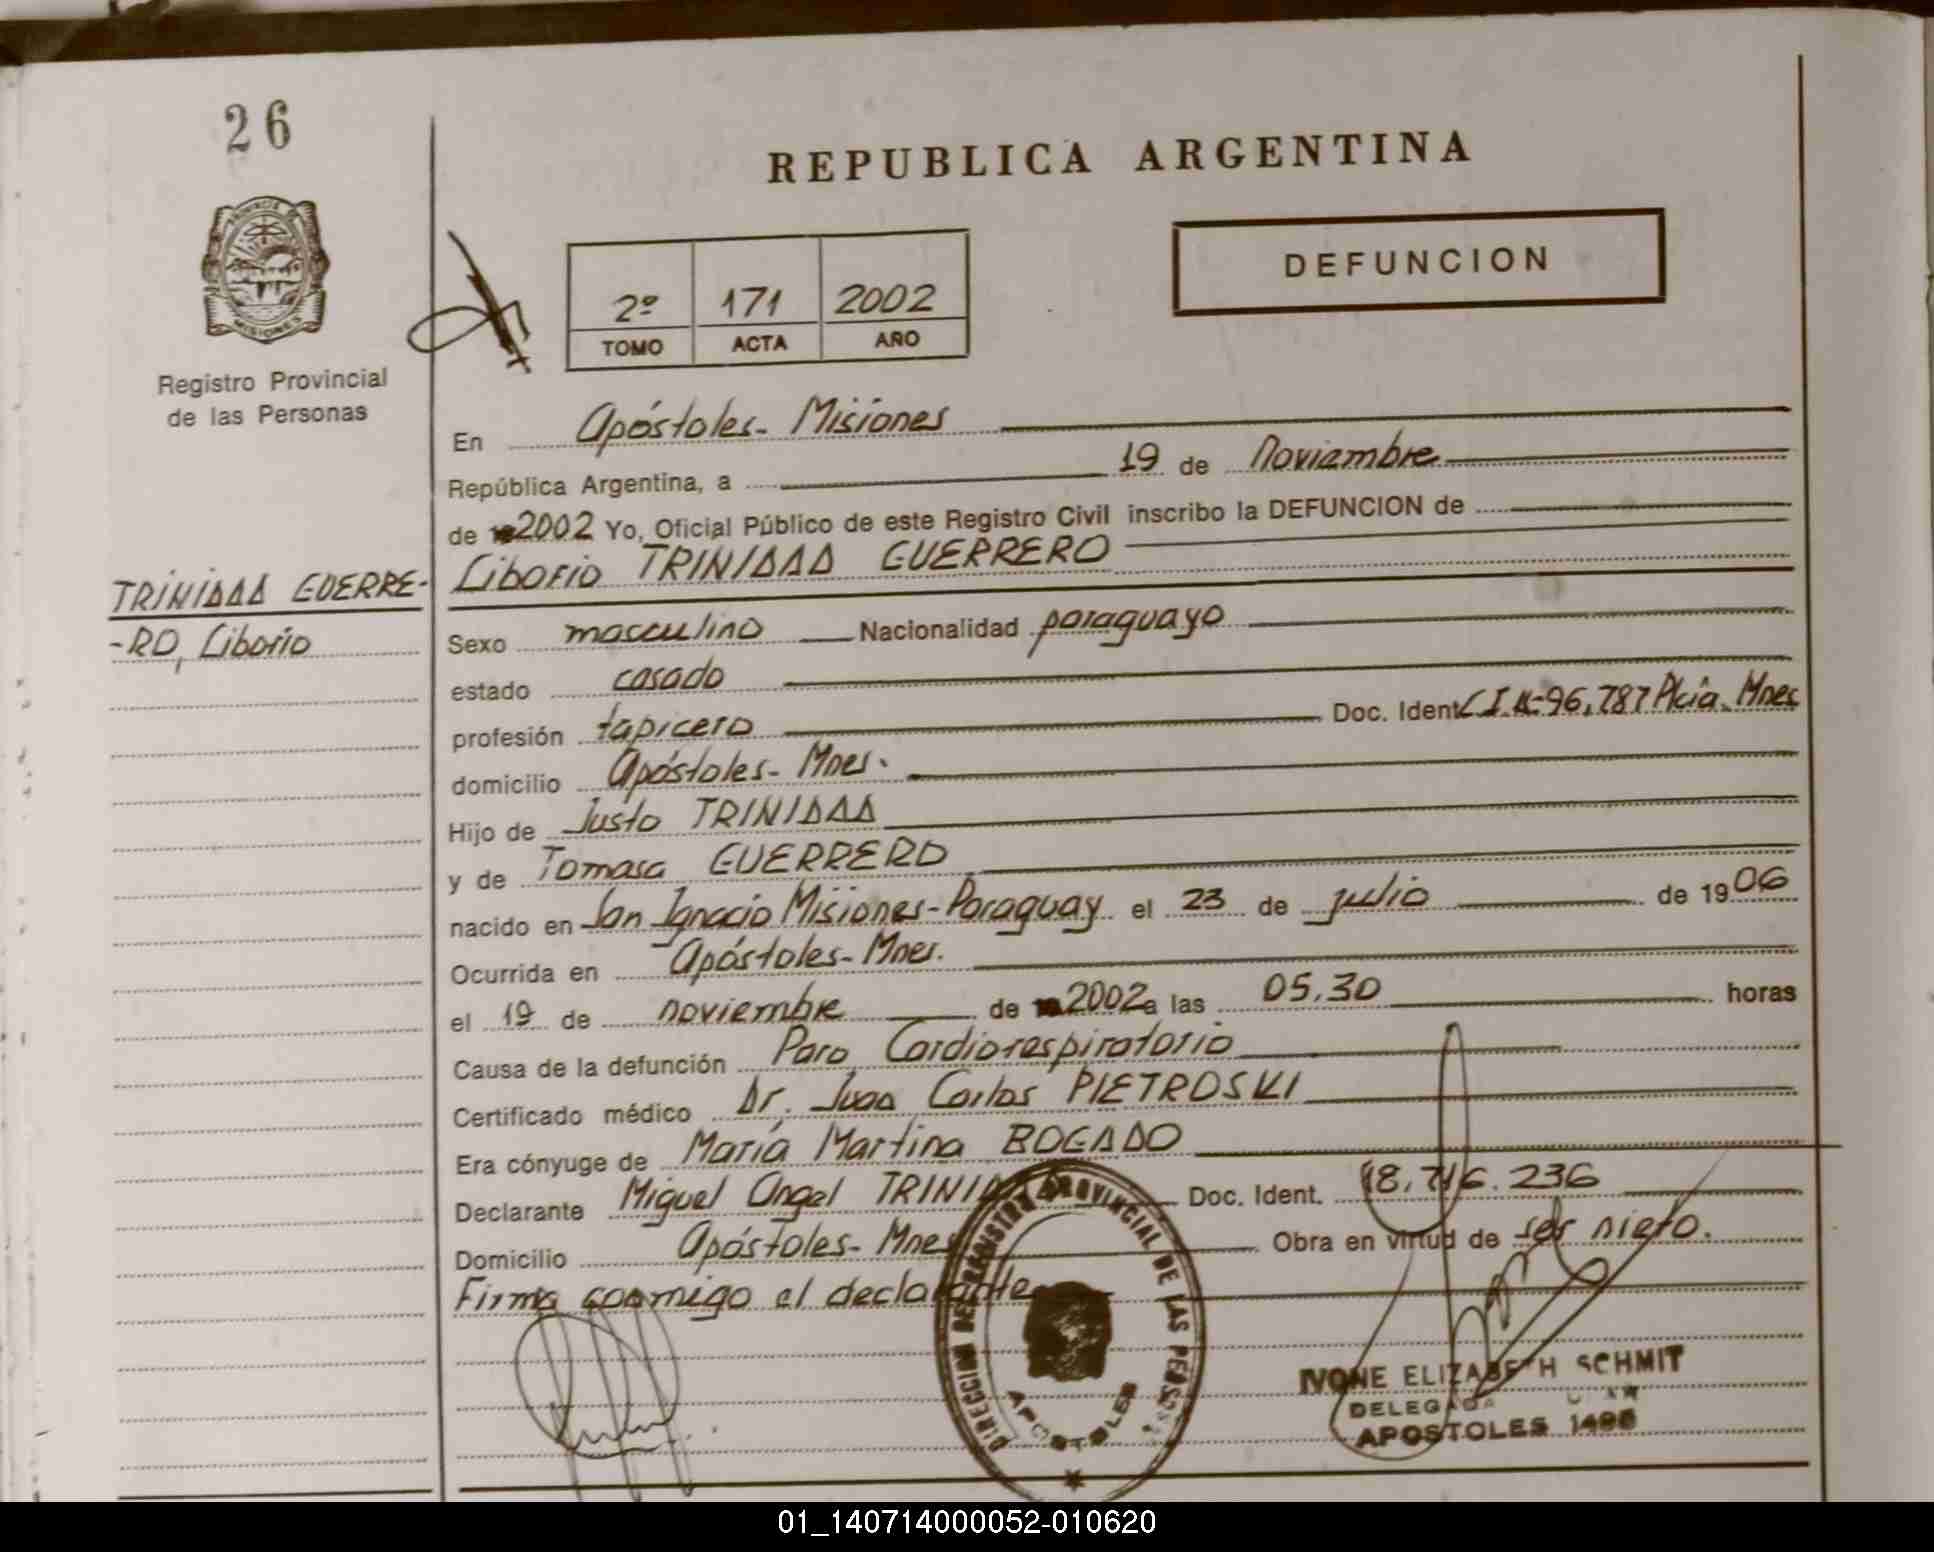 26
REPUBLICA ARGENTINA
PROVINCIA DE
MISIONES
Registro Provincial
de las Personas
2º 171 2002
TOMO ACTA AÑO
DEFUNCION
En Apóstoles- Misiones
República Argentina, a 19 de Noviembre
de 2002 Yo, Oficial Público de este Registro Civil inscribo la DEFUNCION de
Liborio TRINIDAD GUERRERO
TRINIDAD GUERRE-
-RO, Liborio
Sexo masculino Nacionalidad paraguayo
estado casado
profesión tapicero Doc. Ident. C.I.Nº 96.787 Plcia. Mnes
domicilio Apóstoles- Mnes.
Hijo de Justo TRINIDAD
y de Tomasa GUERRERO
nacido en San Ignacio Misiones-Paraguay el 23 de julio de 1906
Ocurrida en Apóstoles- Mnes.
el 19 de noviembre de 2002 a las 05,30 horas
Causa de la defunción Paro Cardiorespiratorio
Certificado médico Dr. Juan Carlos PIETROSKI
Era cónyuge de María Martina BOGADO
Declarante Miguel Angel TRINIDAD Doc. Ident. 18.716.236
Domicilio Apóstoles- Mnes Obra en virtud de ser nieto.
Firma conmigo el declarante
DIRECCION DEL REGISTRO PROVINCIAL DE LAS PERSONAS
APOSTOLES
IVONE ELIZABETH SCHMIT
DELEGADA
APOSTOLES
01_140714000052-010620